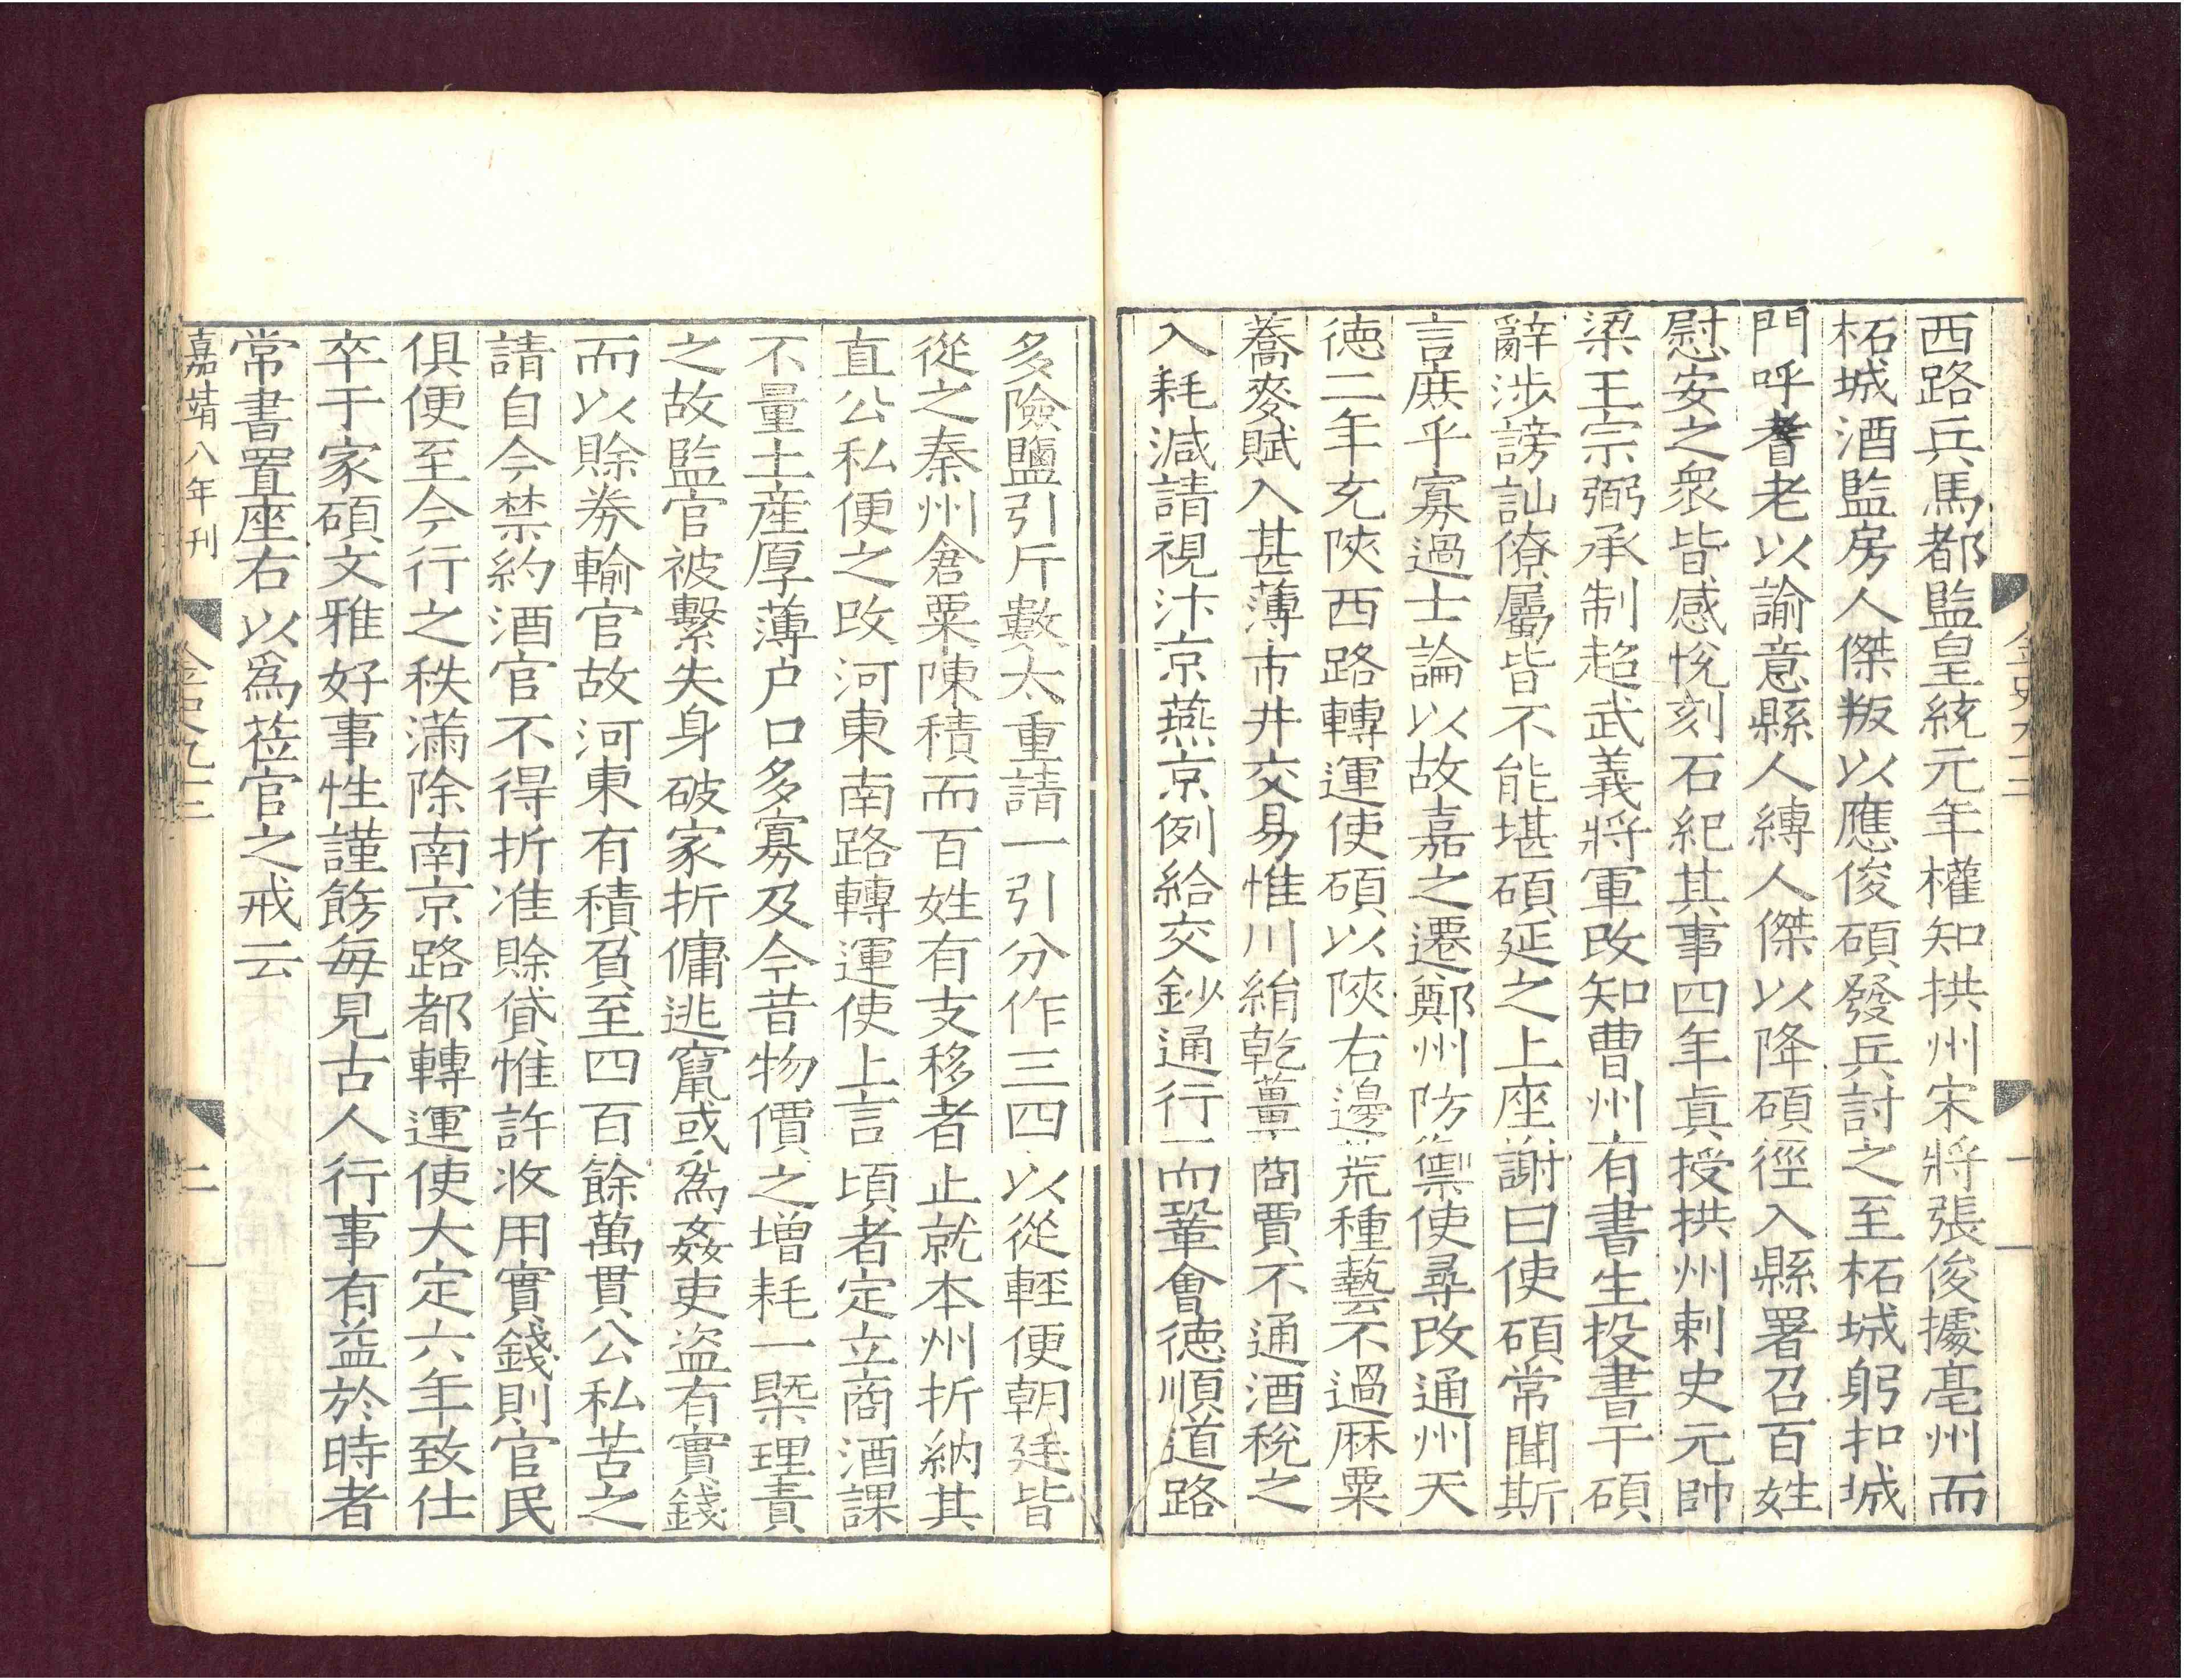 西路兵馬都監皇統元年權知拱州宋將張俊據亳州而
柘城酒監房人傑叛以應俊碩發兵討之至柘城躬扣城
門呼耆老以諭意縣人縛人傑以降碩徑入縣署召百姓
慰安之衆皆感悅刻石紀其事四年眞授拱州刺史元帥
梁王宗弼承制超武義將軍改知曹州有書生投書于碩
辭涉謗訕僚屬皆不能堪碩延之上座謝曰使碩常聞斯
言庶乎寡過士論以故嘉之遷鄭州防禦使尋改通州天
德二年充陝西路轉運使碩以陝右邊荒種藝不過麻粟
蕎麥賦入甚薄市井交易惟川絹乾薑商賈不通酒稅之
入耗減請視汴京燕京例給交鈔通行而鞏會德順道路
多險鹽引斤數太重請一引分作三四以從輕便朝廷皆
從之秦州倉粟陳積而百姓有支移者止就本州折納其
直公私便之改河東南路轉運使上言頃者定立商酒課
不量土産厚薄户口多寡及今昔物價之增耗一槩理責
之故監官被繫失身破家折傭逃竄或爲姦吏盜有實錢
而以賒券輸官故河東有積負至四百餘萬貫公私苦之
請自今禁約酒官不得折准賒貸惟許收用實錢則官民
俱便至今行之秩滿除南京路都轉運使大定六年致仕
卒于家碩文雅好事性謹飭每見古人行事有益於時者
常書置座右以爲莅官之戒云
嘉靖八年刊 金史九二 二